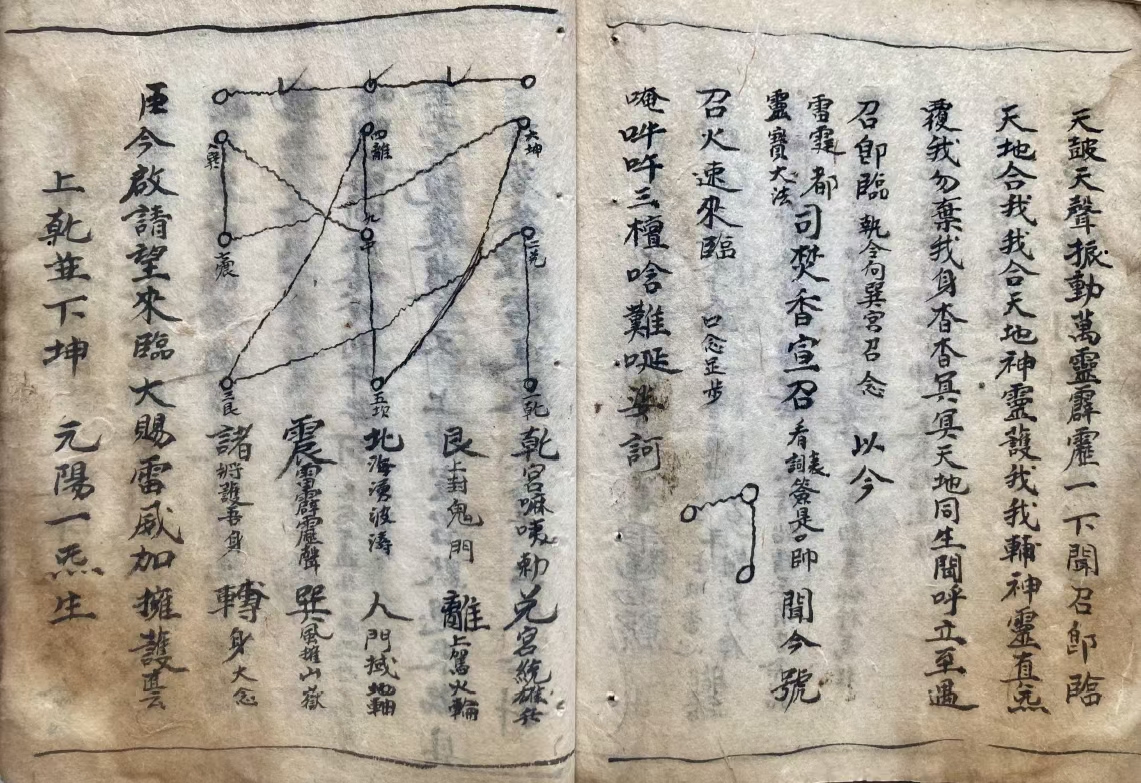 天皷天聲振動萬靈霹靂一下聞召卽臨
天地合我我合天地神靈護我我輔神靈直炁
覆我勿棄我身杳杳冥冥天地同生聞呼立至過
召卽臨 執令向巽宮召 念 以今
雷霆都
靈寶大法
司焚香宣召 看詞表簽是〇帥 聞今號
召火速來臨 口念足步
唵吽吽三檀唅難哫娑訶
六坤
二兌
一乾
四離
九
中
五坎
巽
震
三艮
乾宮嘛咦勅 兌宮統雄兵
艮上封鬼門 離上駕火輪
北海湧波濤 人門撼地軸
震雷霹靂聲 巽風摧山嶽
諸將護吾身 轉身大念
臣今啟請望來臨大賜雷威加擁護云
上乾並下坤 元陽一炁生